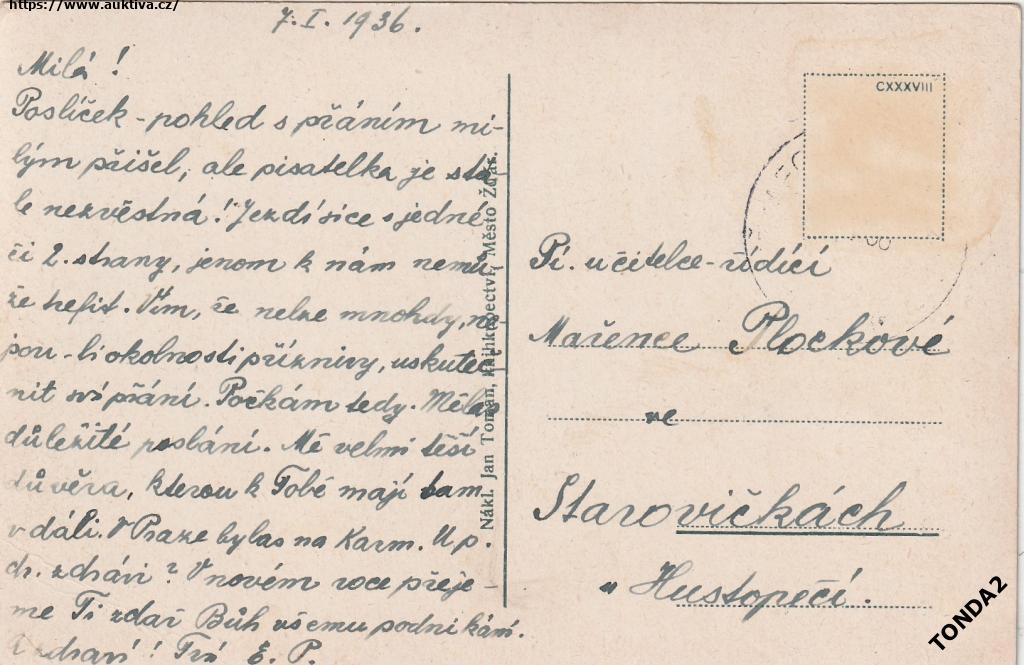 https://www.auktiva.cz/
7.I. 1936.
Milá!
Poslíček - pohled s přáním mi-
lým přišel, ale pisatelka je stá-
le nezvěstná! Jezdí sice s jedné
či 2. strany, jenom k nám nemů-
že trefit. Vím, že nelze mnohdy, ne-
jsou-li okolnosti příznivy, uskuteč-
nit svá přání. Počkám tedy. Mělas
důležité poslání. Mě velmi těší
důvěra, kterou k Tobě mají tam
v dáli. V Praze bylas na Karm. U p.
dr. zdrávi? V novém roce přeje-
me Ti zdař Bůh všemu podnikání.
Zdraví! Tvá E. P.
Nákl. Jan Toman, knihkupectví, Město Žďár.
CXXXVIII
Pí. učitelce-řídící
Mařence Plockové
ve
Starovičkách
u Hustopečí.
TONDA2